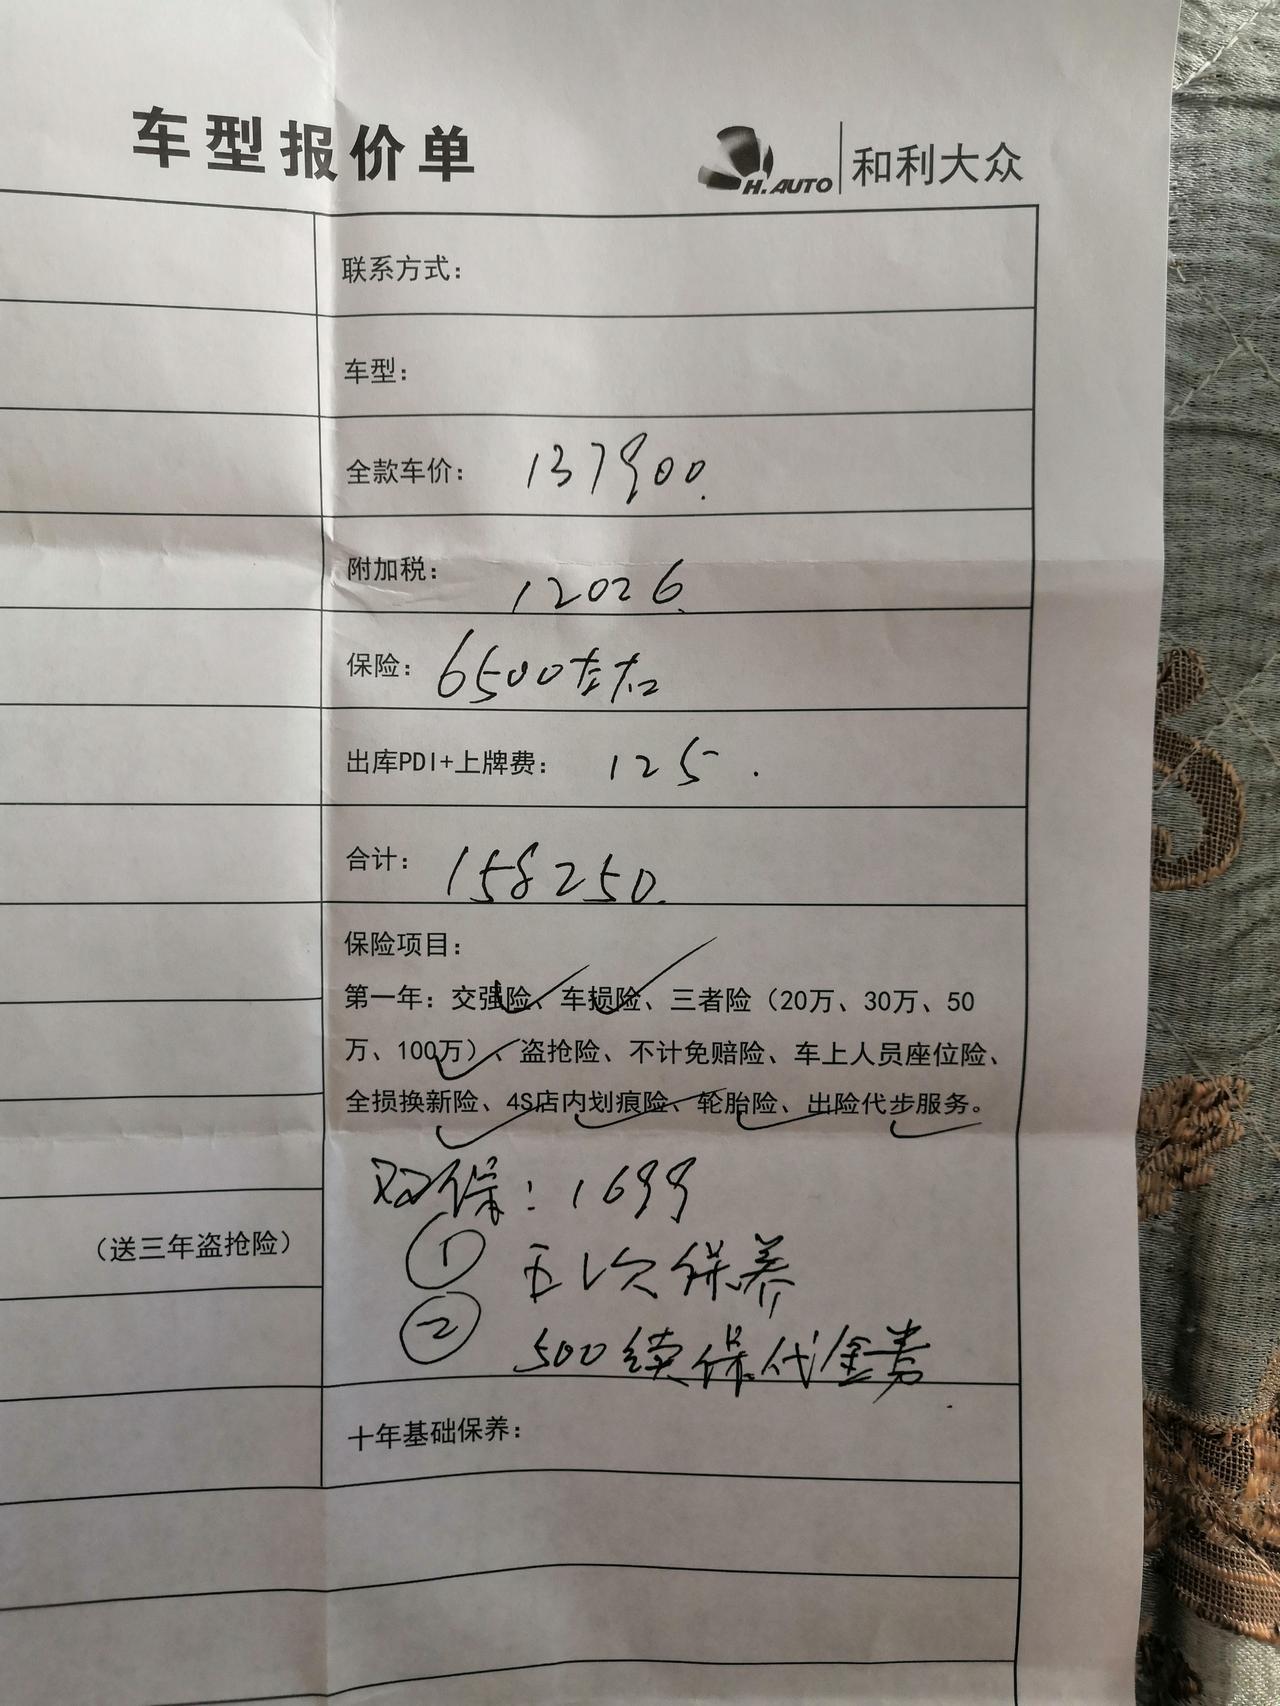 车型报价单
H.AUTO 和利大众
联系方式：
车型：
全款车价： 137900.
附加税： 12026.
保险： 6500左右
出库PDI+上牌费： 125.
合计： 158250.
保险项目：
第一年：交强险、车损险、三者险（20万、30万、50
万、100万）、盗抢险、不计免赔险、车上人员座位险、
全损换新险、4S店内划痕险、轮胎险、出险代步服务。
双保：1699
① 五次保养
（送三年盗抢险）
② 500续保代金券
十年基础保养：